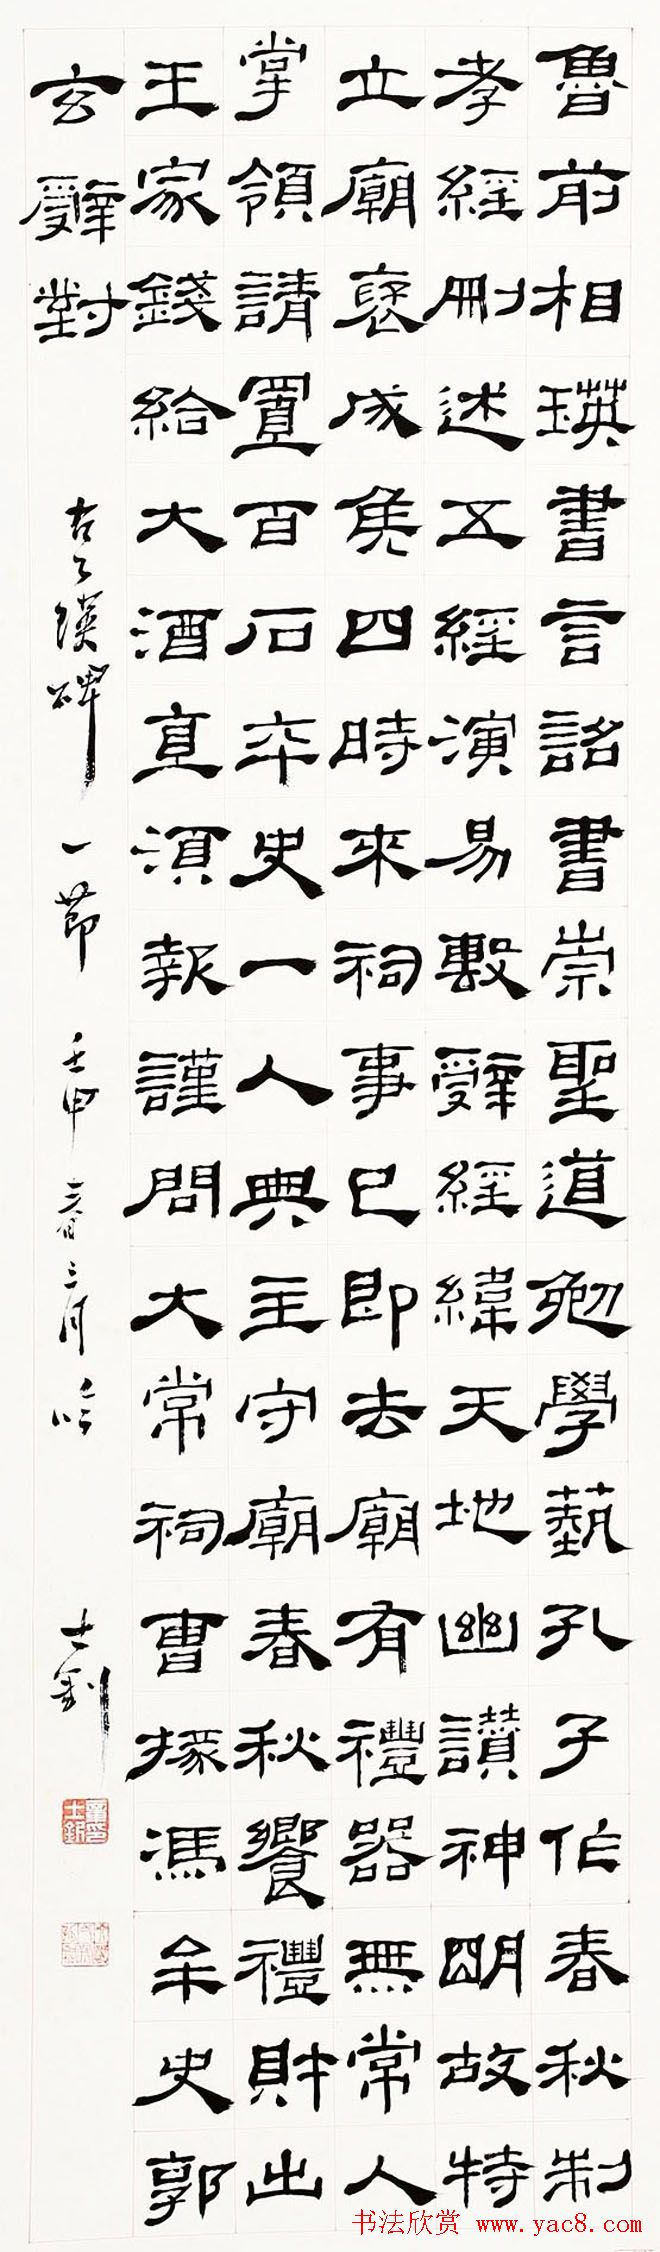 魯前相瑛書言詔書崇聖道勉學藝孔子作春秋制
孝經刪述五經演易繫辭經緯天地幽讃神明故特
立廟襃成侯四時來祠事已即去廟有禮器無常人
掌領請置百石卒史一人典主守廟春秋饗禮財出
王家錢給大酒直須報謹問大常祠曹掾馮牟史郭
玄辭對
古乙瑛碑一節 壬申春三月
士釗
书法欣赏 www.yac8.com